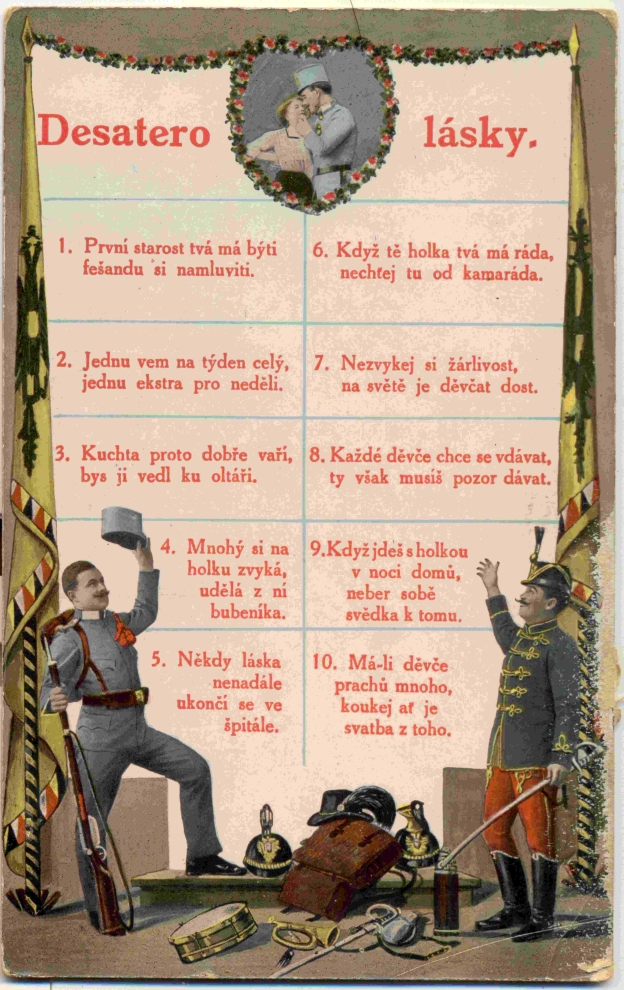 Desatero lásky.
1. První starost tvá má býti
fešandu si namluviti.
2. Jednu vem na týden celý,
jednu ekstra pro neděli.
3. Kuchta proto dobře vaří,
bys ji vedl ku oltáři.
4. Mnohý si na
holku zvyká,
udělá z ní
bubeníka.
5. Někdy láska
nenadále
ukončí se ve
špitále.
6. Když tě holka tvá má ráda,
nechtej tu od kamaráda.
7. Nezvykej si žárlivost,
na světě je děvčat dost.
8. Každé děvče chce se vdávat,
ty však musíš pozor dávat.
9. Když jdeš s holkou
v noci domů,
neber sobě
svědka k tomu.
10. Má-li děvče
prachů mnoho,
koukej ať je
svatba z toho.